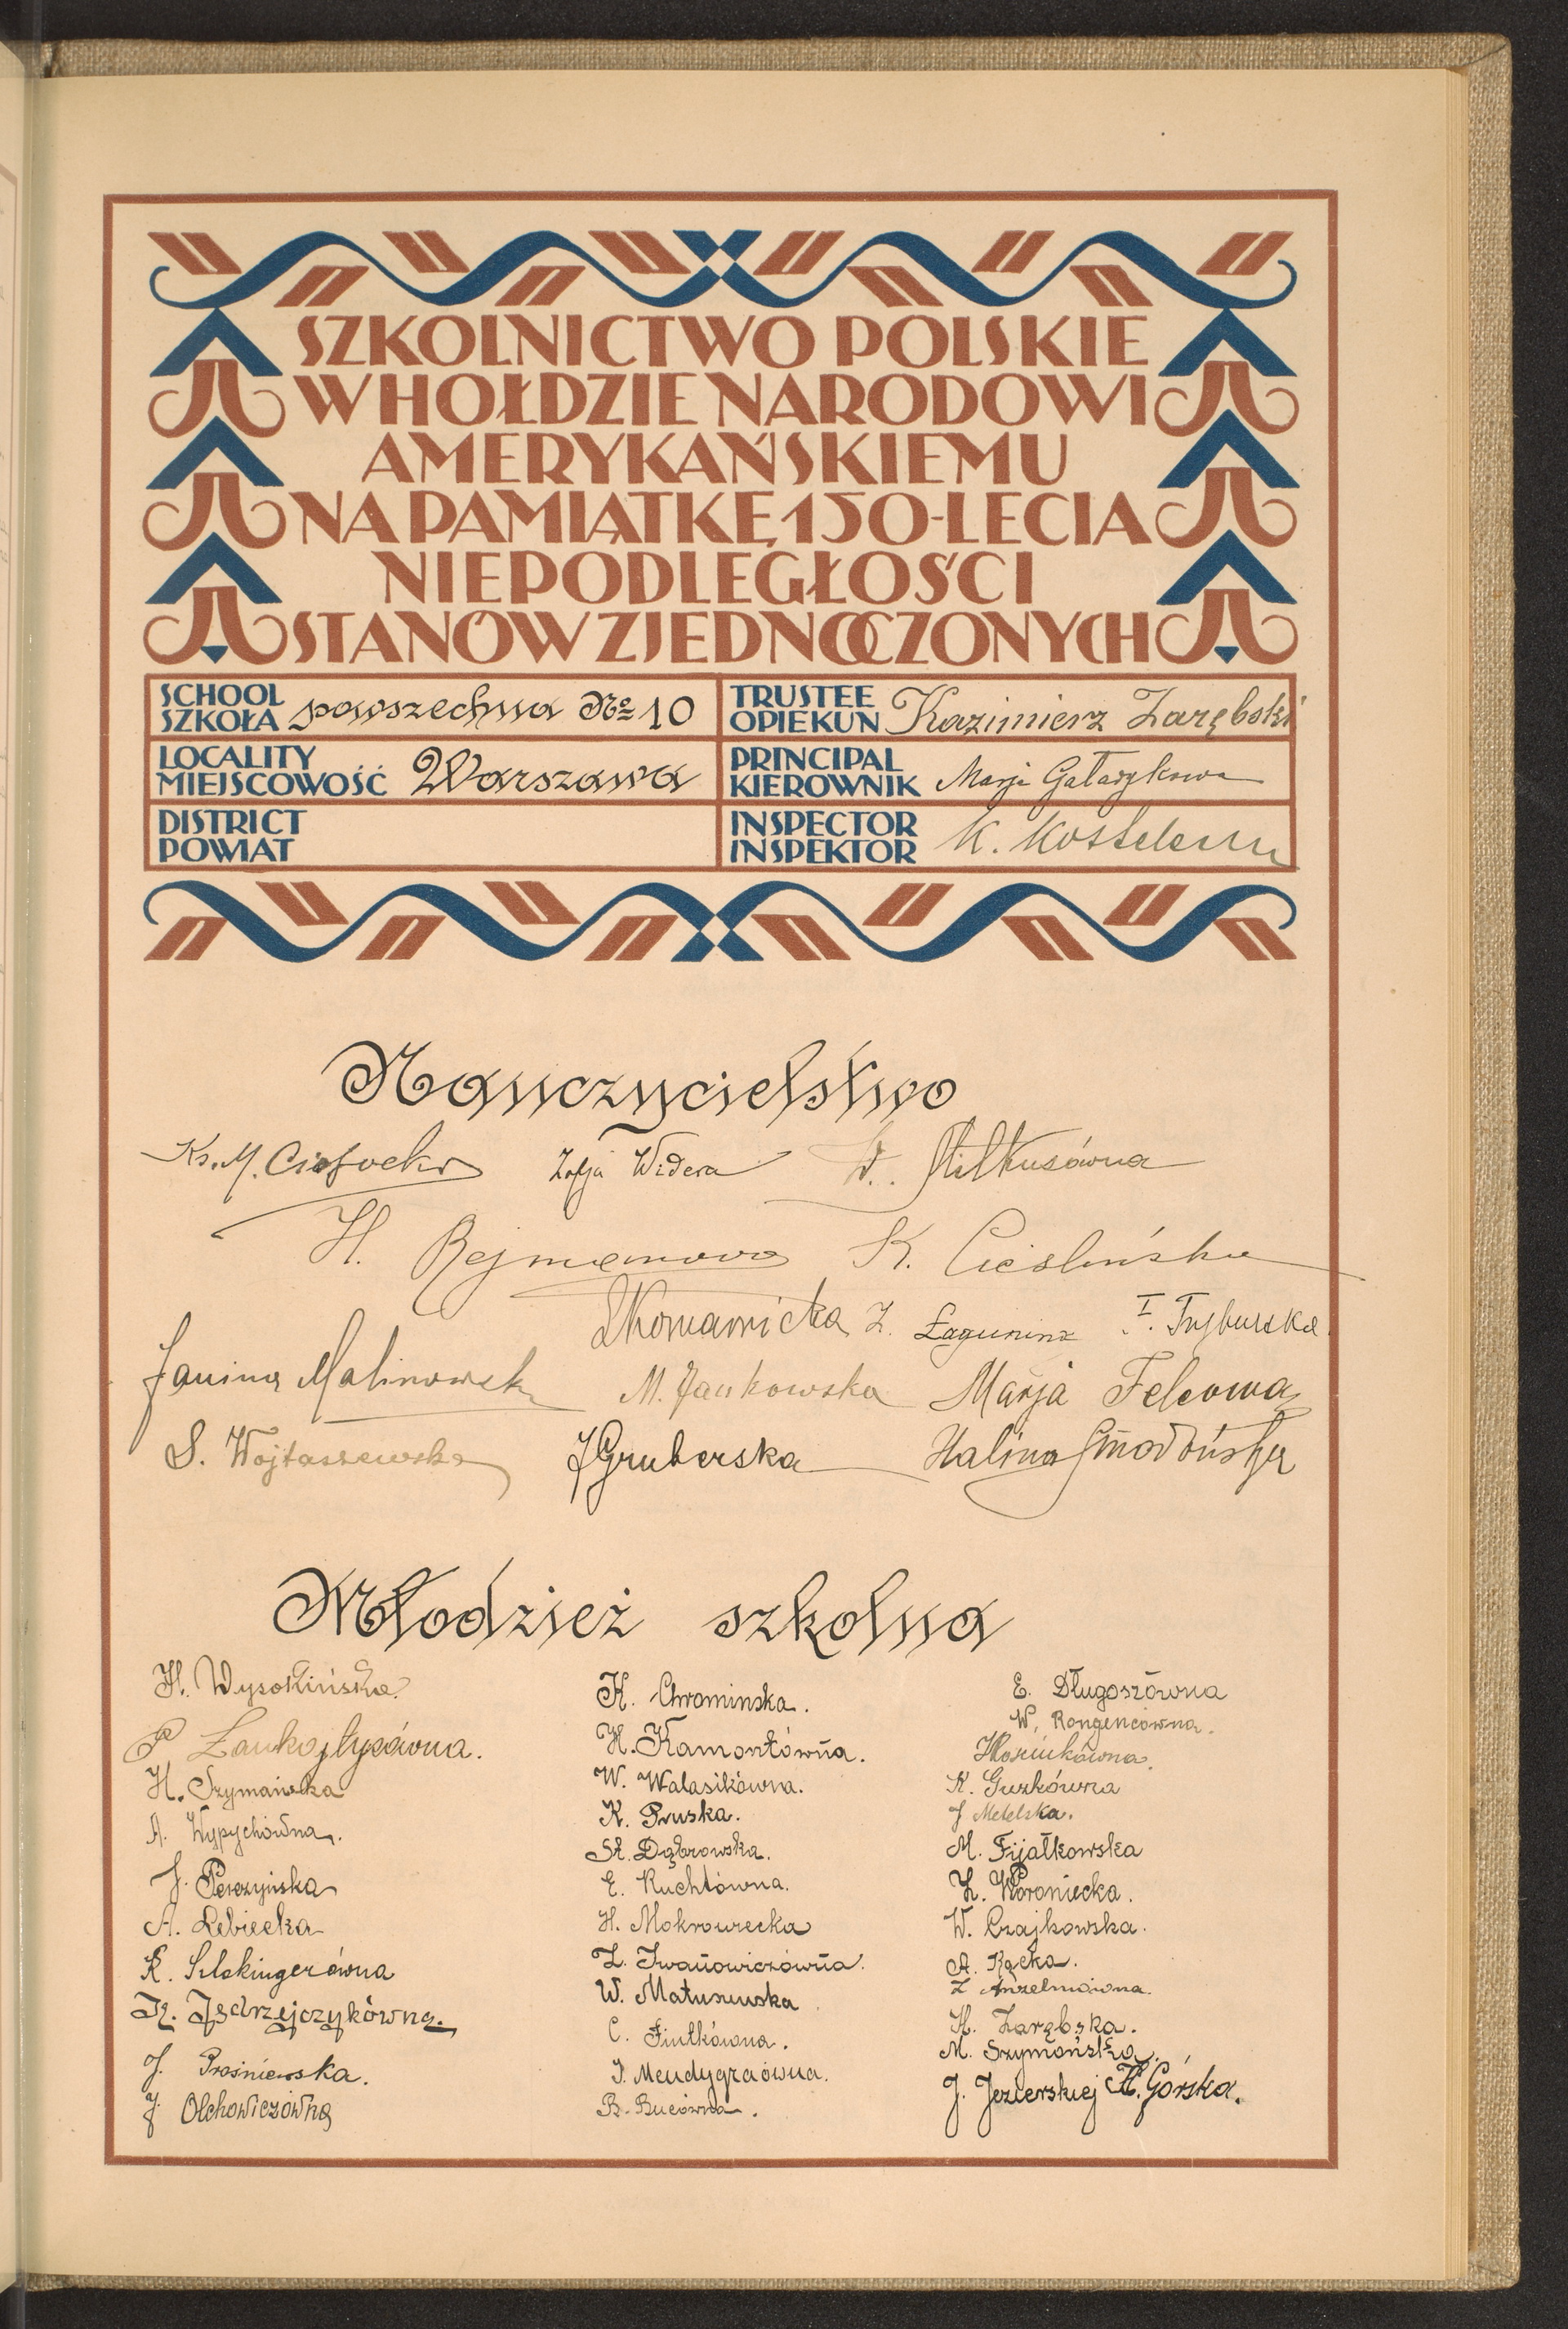 SZKOLNICTWO POLSKIE
W HOŁDZIE NARODOWI
AMERYKAŃSKIEMU
NA PAMIĄTKĘ 150-LECIA
NIEPODLEGŁOŚCI
STANÓW ZJEDNOCZONYCH
SCHOOL
SZKOŁA powszechna № 10
TRUSTEE
OPIEKUN Kazimierz Zarębski
LOCALITY
MIEJSCOWOŚĆ Warszawa
PRINCIPAL
KIEROWNIK Marja
DISTRICT
POWIAT
INSPECTOR
INSPEKTOR K.
Nauczycielstwo
Ks. M. Zofja Widera
H. Rejmanowa K. Cieślińska
Z. Łagunina I. Tryburska
Janina Malinowska M. Jankowska Marja Felcowa
S. Wojtaszewska J Gruberska Halina
Młodzież szkolna
H. Wysokińska.
H. Szymańska
A. Wypychówna.
J. Perczyńska
A. Lebiecka
K.
K. Jędrzejczykówna.
J. Prośniewska.
J. Olchowiczówna
H. Chrominska.
H. Kamontówna.
W. Walasikówna.
K. Pruska.
St. Dąbrowska.
E. Kuchtówna.
H. Mokrowiecka
Z. Iwanowiczówna.
W. Matuszewska
C. Fiutkówna.
J. Mendygraówna.
B. Bucówna.
E. Długoszówna
W. Rongencówna.
K. Guzkówna
J Metelska.
M. Fijałkowska
Z. Woroniecka.
W. Czajkowska.
A. Rącka.
Z Anzelmówna.
H. Zarębska.
M. Szymańska.
J. Jezierskiej H. Górska.